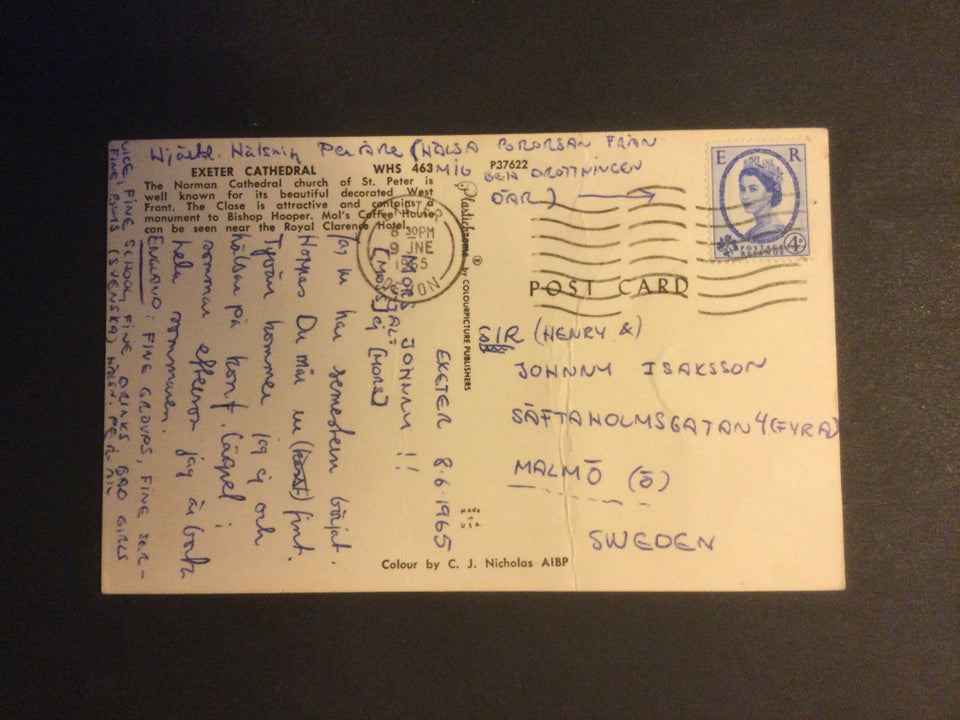 EXETER CATHEDRAL WHS 463
The Norman Cathedral church of St. Peter is
well known for its beautiful decorated West
Front. The Close is attractive and contains a
monument to Bishop Hooper. Mol's Coffee House
can be seen near the Royal Clarence Hotel.
P37622
Hjärtl. Hälsning Per Åre (HÄLSA BRORSAN FRÅN
MIG
DROTTNINGEN
Plastichrome ® by COLOURPICTURE PUBLISHERS
EXETER
8 30PM
9 JNE
1965
DEVON
E R
POSTAGE
REVENUE
4D
POST CARD
SIR (HENRY &)
JOHNNY ISAKSSON
SÄFTAHOLMSGATAN 4 (FYRA)
MALMÖ (Ö)
SWEDEN
MADE
IN
USA
EXETER 8.6.1965
MORS JOHNNY !!
[MORS]
Ja, nu har semestern börjat.
Hoppas Du mår fint.
Tyvärr kommer jag ej och
hälsar på konf. lägret i
sommar eftersom jag är borta
hela sommaren.
ENGLAND: FINE GROUPS, FINE SER-
VICE, FINE SCHOOL, FINE DRINKS BAD GIRLS
FINE BOYS (SVENSKA)
Colour by C. J. Nicholas AIBP